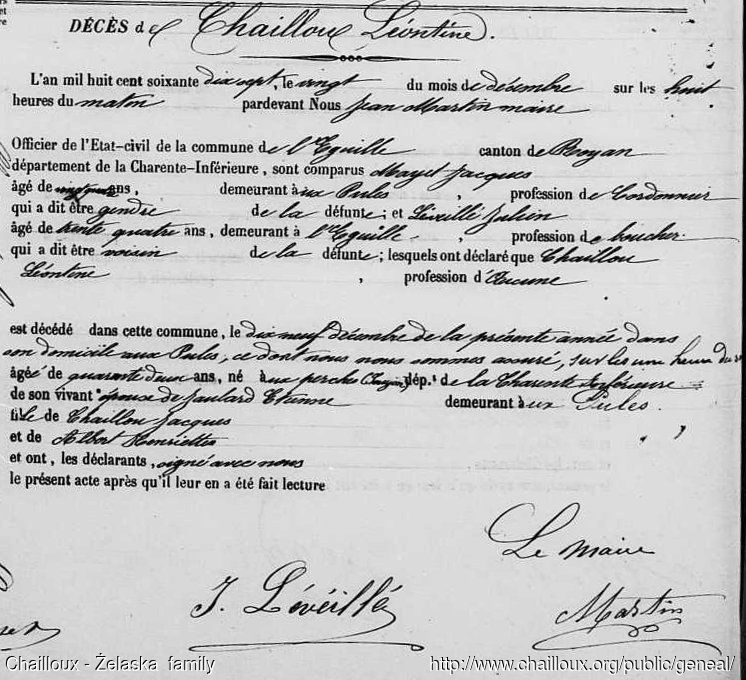 DÉCÈS de Chailloux Léontine.
L'an mil huit cent soixante dix sept, le vingt du mois de décembre sur les huit
heures du matin pardevant Nous Jean Martin maire
Officier de l'Etat-civil de la commune de l'Eguille canton de Royan
département de la Charente-Inférieure, sont comparus Mayet Jacques
âgé de ans, demeurant aux Pules, profession de Cordonnier
qui a dit être gendre de la défunte; et Léveillé Julien
âgé de trente quatre ans, demeurant à l'Eguille, profession de boucher
qui a dit être voisin de la défunte; lesquels ont déclaré que Chaillou
Léontine, profession d'Aucune
est décédé dans cette commune, le dix neuf décembre de la présente année dans
son domicile aux Pules, ce dont nous nous sommes assuré, sur les une heure du
âgée de quarante deux ans, né à dép.t de la Charente Inférieure
de son vivant épouse de Etienne demeurant aux Pules.
fille de Chaillou Jacques
et de Albert Henriette
et ont, les déclarants, signé avec nous
le présent acte après qu'il leur en a été fait lecture
Le maire
J. Léveillé
Martin
Chailloux - Żelaska family
http://www.chailloux.org/public/geneal/